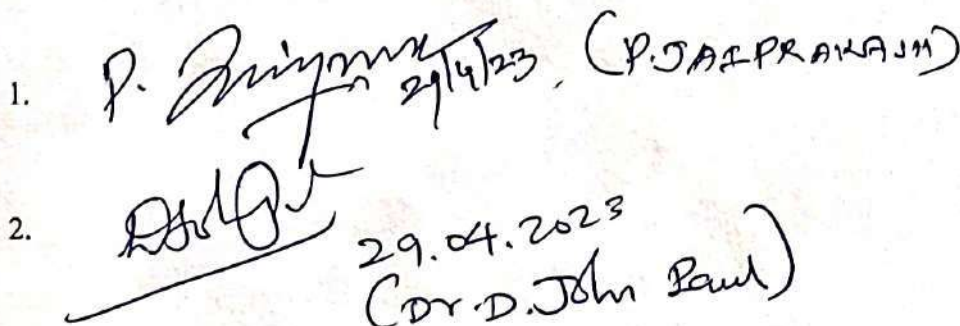 1. P. 29/4/23, (P.JAIPRAKASH)
2.
29.04.2023
(Dr.D.John Paul)